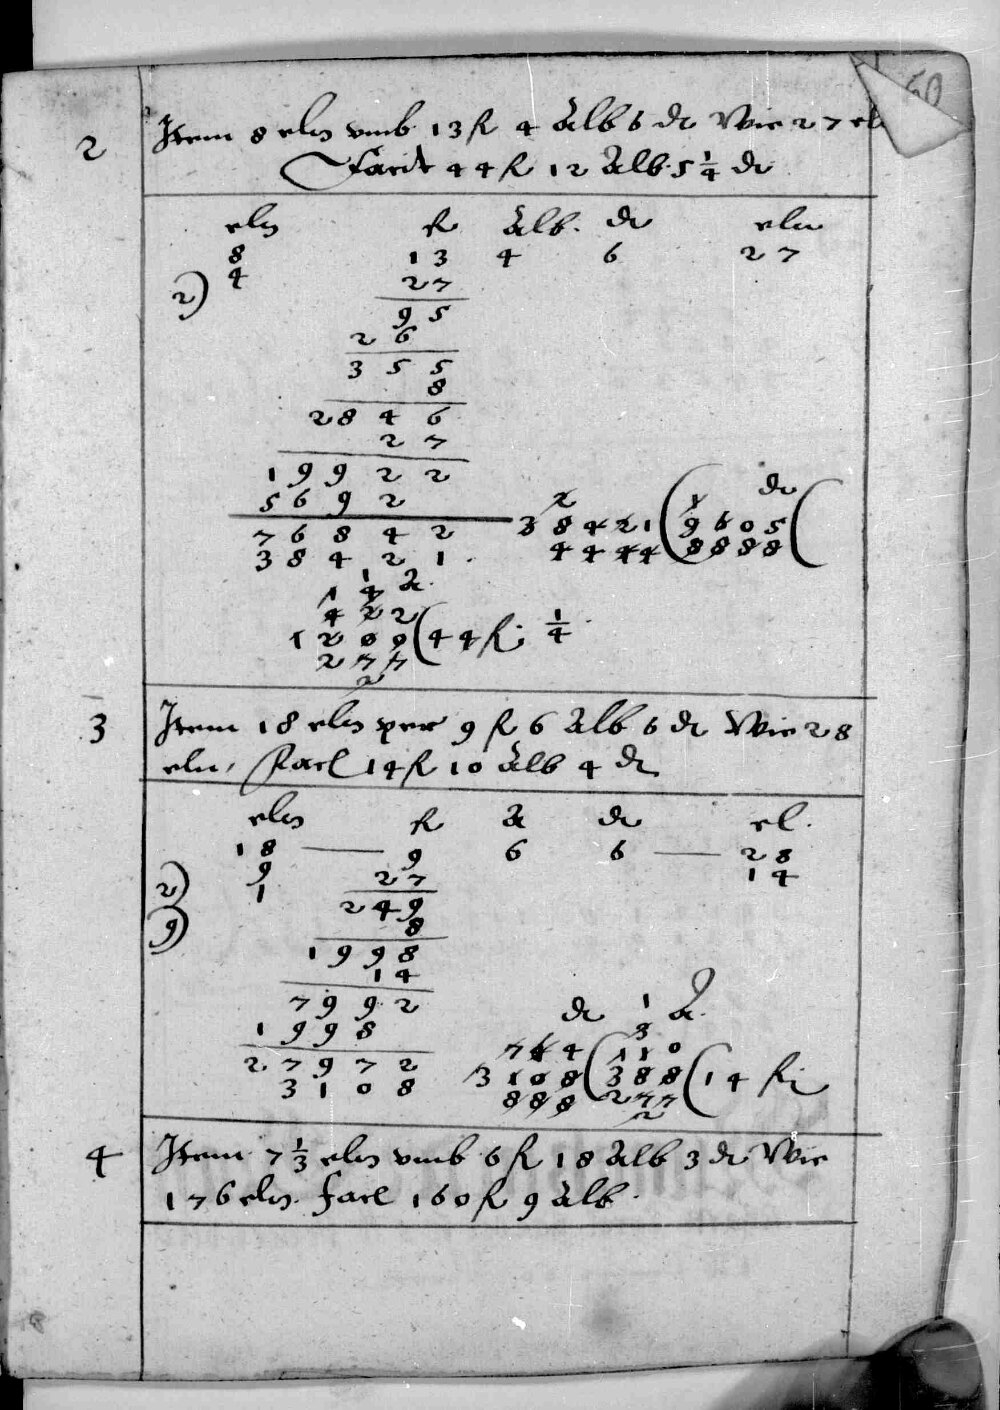 60
2 Item 8 eln vmb 13 fl 4 Alb 6 dr Wie 27 el
Facit 44 fl 12 Alb 5 1/4 dr
eln fl Alb. dr eln
8 13 4 6 27
2) 4 27
95
26
355
8
2846
27
19922
5692 dr
76842 38421 ( 9605 (
38421 4444 8888
1 4 2
4 2 2
1 2 0 0 ( 44 fl 1/4
2 7 7
2
3 Item 18 eln per 9 fl 6 Alb 6 dr Wie 28
eln, Facl 14 fl 10 Alb 4 dr
eln fl A dr el.
18 — 9 6 6 — 28
2) 9 27 14
9) 1 249
8
1998
14
7992 dr 1 A.
1998 3
27972 744 ( 110
3108 3108 ( 388 ( 14 fl
888 277
2
4 Item 7 1/3 eln vmb 6 fl 18 Alb 3 dr Wie
176 eln. facl 160 fl 9 Alb.